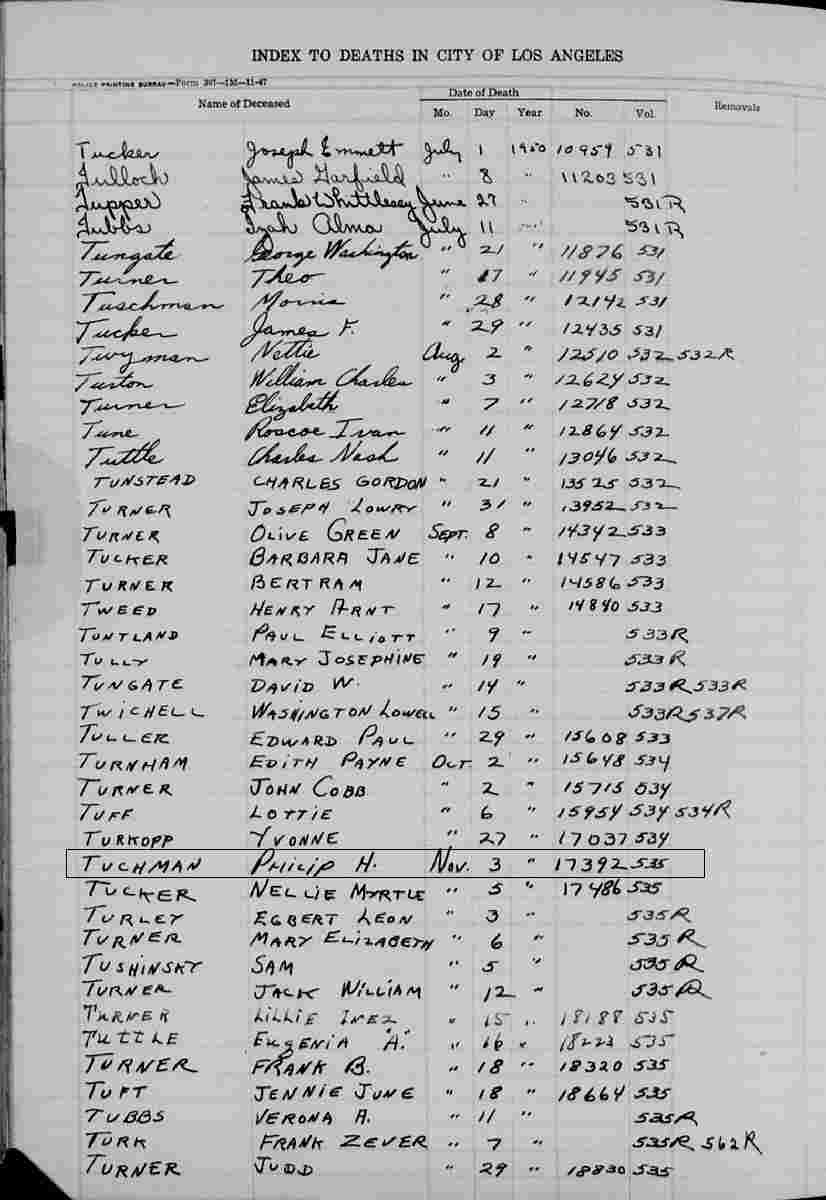 INDEX TO DEATHS IN CITY OF LOS ANGELES
POLICE PRINTING BUREAU—Form 307—1M—11-47
Name of Deceased Date of Death Removals
Mo. Day Year No. Vol.
Tucker Joseph Emmett July 1 1950 10959 531
Tulloch James Garfield " 8 " 11203 531
Tupper Frank Whittlesey June 27 " 531R
Tubbs Izah Alma July 11 " 531R
Tungate George Washington " 21 " 11876 531
Turner Theo " 17 " 11945 531
Tuschman Morris " 28 " 12142 531
Tucker James F. " 29 " 12435 531
Twyman Nettie Aug. 2 " 12510 532 532R
Tuston William Charles " 3 " 12624 532
Turner Elizabeth " 7 " 12718 532
Tune Roscoe Ivan " 11 " 12864 532
Tuttle Charles Nash " 11 " 13046 532
TUNSTEAD CHARLES GORDON " 21 " 13525 532
TURNER JOSEPH LOWRY " 31 " 13952 532
TURNER OLIVE GREEN SEPT. 8 " 14342 533
TUCKER BARBARA JANE " 10 " 14547 533
TURNER BERTRAM " 12 " 14586 533
TWEED HENRY ARNT " 17 " 14840 533
TUNTLAND PAUL ELLIOTT " 9 " 533R
TULLY MARY JOSEPHINE " 19 " 533R
TUNGATE DAVID W. " 14 " 533R 533R
TWICHELL WASHINGTON LOWELL " 15 " 533R 537R
TULLER EDWARD PAUL " 29 " 15608 533
TURNHAM EDITH PAYNE OCT. 2 " 15648 534
TURNER JOHN COBB " 2 " 15715 534
TUFF LOTTIE " 6 " 15954 534 534R
TURKOPP YVONNE " 27 " 17037 534
TUCHMAN PHILIP H. NOV. 3 " 17392 535
TUCKER NELLIE MYRTLE " 5 " 17486 535
TURLEY EGBERT LEON " 3 " 535R
TURNER MARY ELIZABETH " 6 " 535R
TUSHINSKY SAM " 5 " 535R
TURNER JACK WILLIAM " 12 " 535R
TURNER LILLIE INEZ " 15 " 18188 535
TUTTLE EUGENIA "A." " 16 " 18223 535
TURNER FRANK B. " 18 " 18320 535
TUFT JENNIE JUNE " 18 " 18664 535
TUBBS VERONA A. " 11 " 535R
TURK FRANK ZEVER " 7 " 535R 562R
TURNER JUDD " 29 " 18830 535